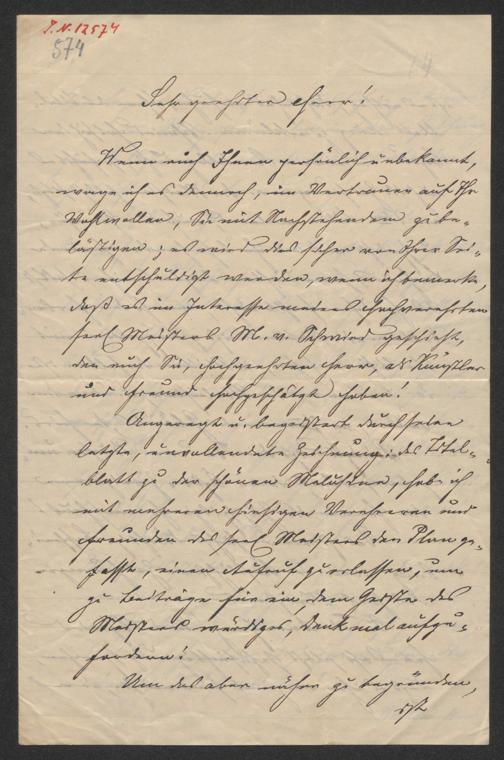 I. N. 12574
574
Sehr geehrter Herr!
Wenn auch Ihnen persönlich unbekannt,
wage ich es dennoch, im Vertrauen auf Ihr
Wohlwollen, Sie mit Nachstehendem zu be-
lästigen; es wird dies sicher von Ihrer Sei-
te entschuldigt werden, wenn ich bemerke,
daß es im Interesse meines hochverehrten
seel Meisters M. v. Schwind geschieht,
den auch Sie, hochgeehrter Herr, als Künstler
und Freund hochgeschätzt haben!
Angeregt u. begeistert durch seine
letzte, unvollendete Zeichnung: des Titel-
blatt zu der schönen Melusine, habe ich
mit mehreren hiesigen Verehrern und
Freunden des seel Meisters den Plan ge-
faßt, einen Aufruf zu erlassen, um
zu Beiträge für ein, dem Geiste des
Meisters würdiges, Denkmal aufzu-
fordern!
Um das aber näher zu begründen,
ist